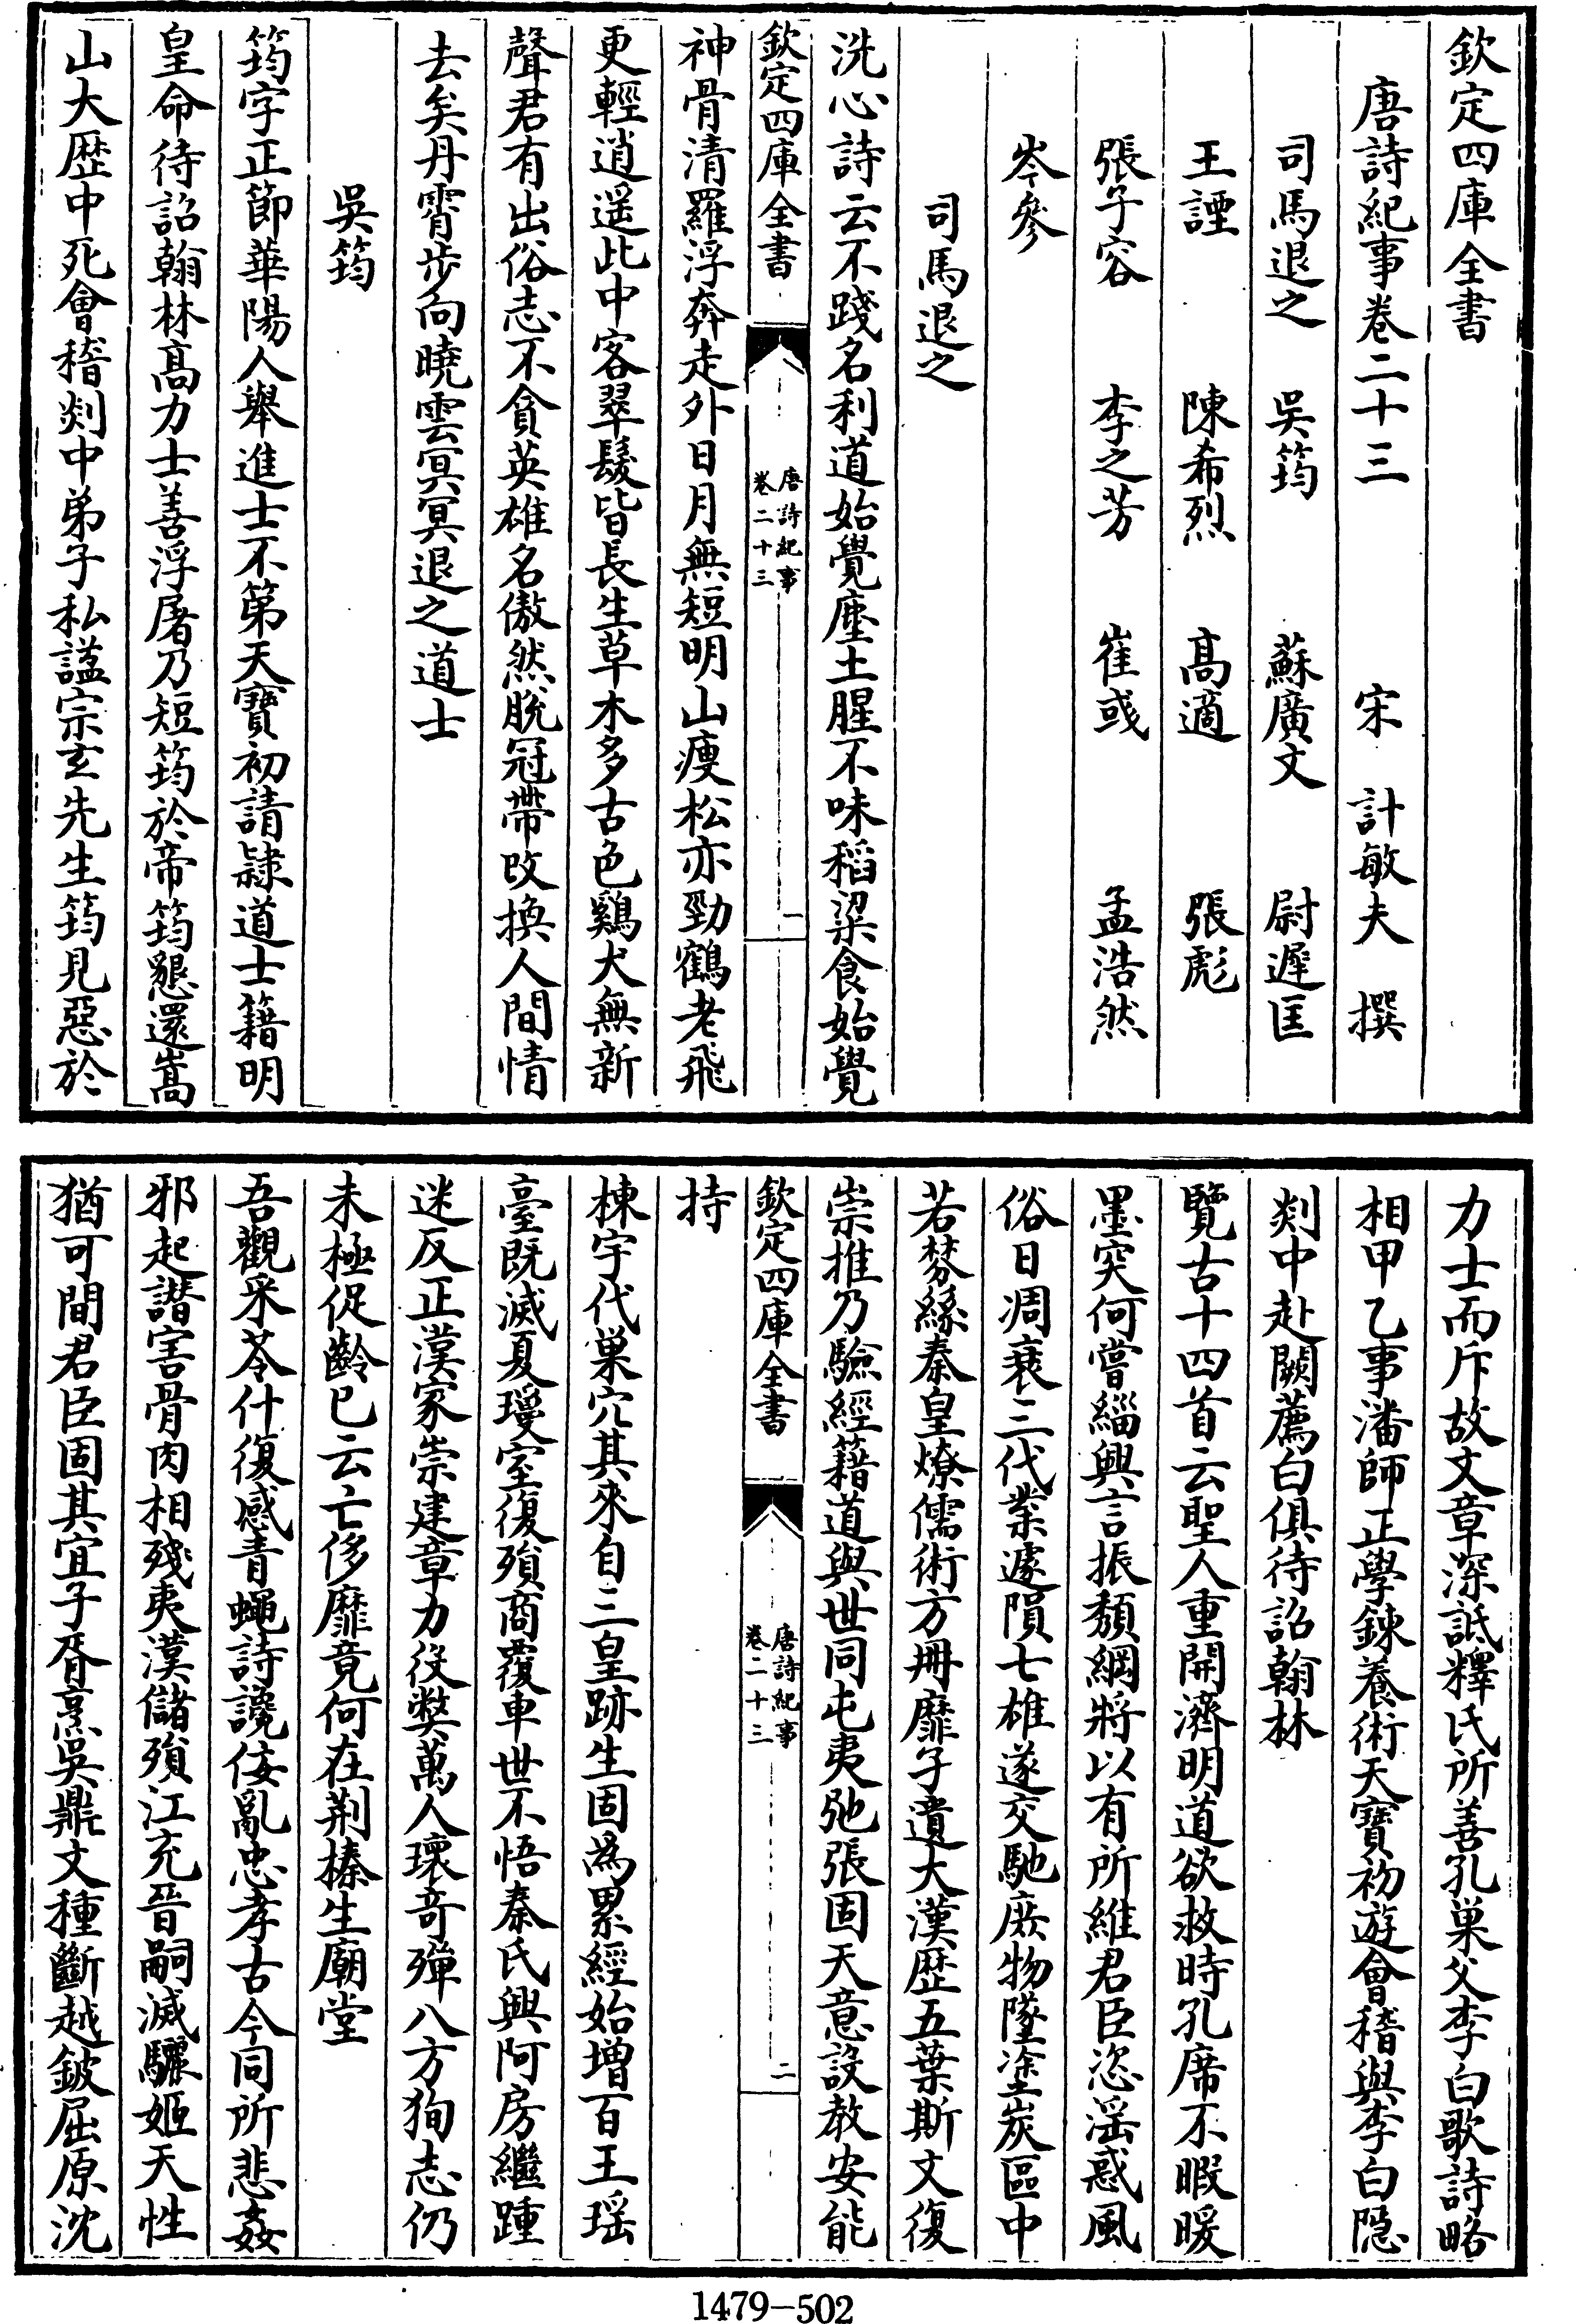 欽定四庫全書
唐詩紀事卷二十三　宋　計敏夫　撰
司馬退之　吳筠　蘇廣文　尉遲匡
王諲　陳希烈　高適　張彪
張子容　李之芳　崔彧　孟浩然
岑參
司馬退之
洗心詩云不踐名利道始覺塵土腥不味稻粱食始覺
欽定四庫全書
唐詩紀事
卷二十三
一
神骨清羅浮奔走外日月無短明山瘦松亦勁鶴老飛
更輕逍遥此中客翠髮皆長生草木多古色鷄犬無新
聲君有出俗志不貪英雄名傲然脫冠帶改換人間情
去矣丹霄步向曉雲冥冥退之道士
吳筠
筠字正節華陽人舉進士不第天寶初請隷道士籍明
皇命待詔翰林高力士善浮屠乃短筠於帝筠懇還嵩
山大歴中死會稽剡中弟子私諡宗玄先生筠見惡於
力士而斥故文章深詆釋氏所善孔巢父李白歌詩略
相甲乙事潘師正學鍊養術天寶初遊會稽與李白隠
剡中赴闕薦白俱待詔翰林
覽古十四首云聖人重開濟明道欲救時孔席不暇暖
墨突何嘗緇興言振頽綱將以有所維君臣恣淫惑風
俗日凋衰三代業遽隕七雄遂交馳庶物墜塗炭區中
若棼絲秦皇燎儒術方冊靡孑遺大漢歴五葉斯文復
崇推乃驗經籍道與世同屯夷弛張固天意設教安能
欽定四庫全書
唐詩紀事
卷二十三
二
持
棟宇代巢穴其來自三皇跡生固為累經始増百王瑶
臺既滅夏璦室復殞商覆車世不悟秦氏興阿房繼踵
迷反正漢家崇建章力役弊萬人瓌奇殫八方狥志仍
未極促齡已云亡侈靡竟何在荆榛生廟堂
吾觀采苓什復感青蠅詩讒佞亂忠孝古今同所悲姦
邪起譖害骨肉相殘夷漢儲殞江充晉嗣滅驪姬天性
猶可間君臣固其宜子胥烹吳鼎文種斷越鈹屈原沈
1479—502